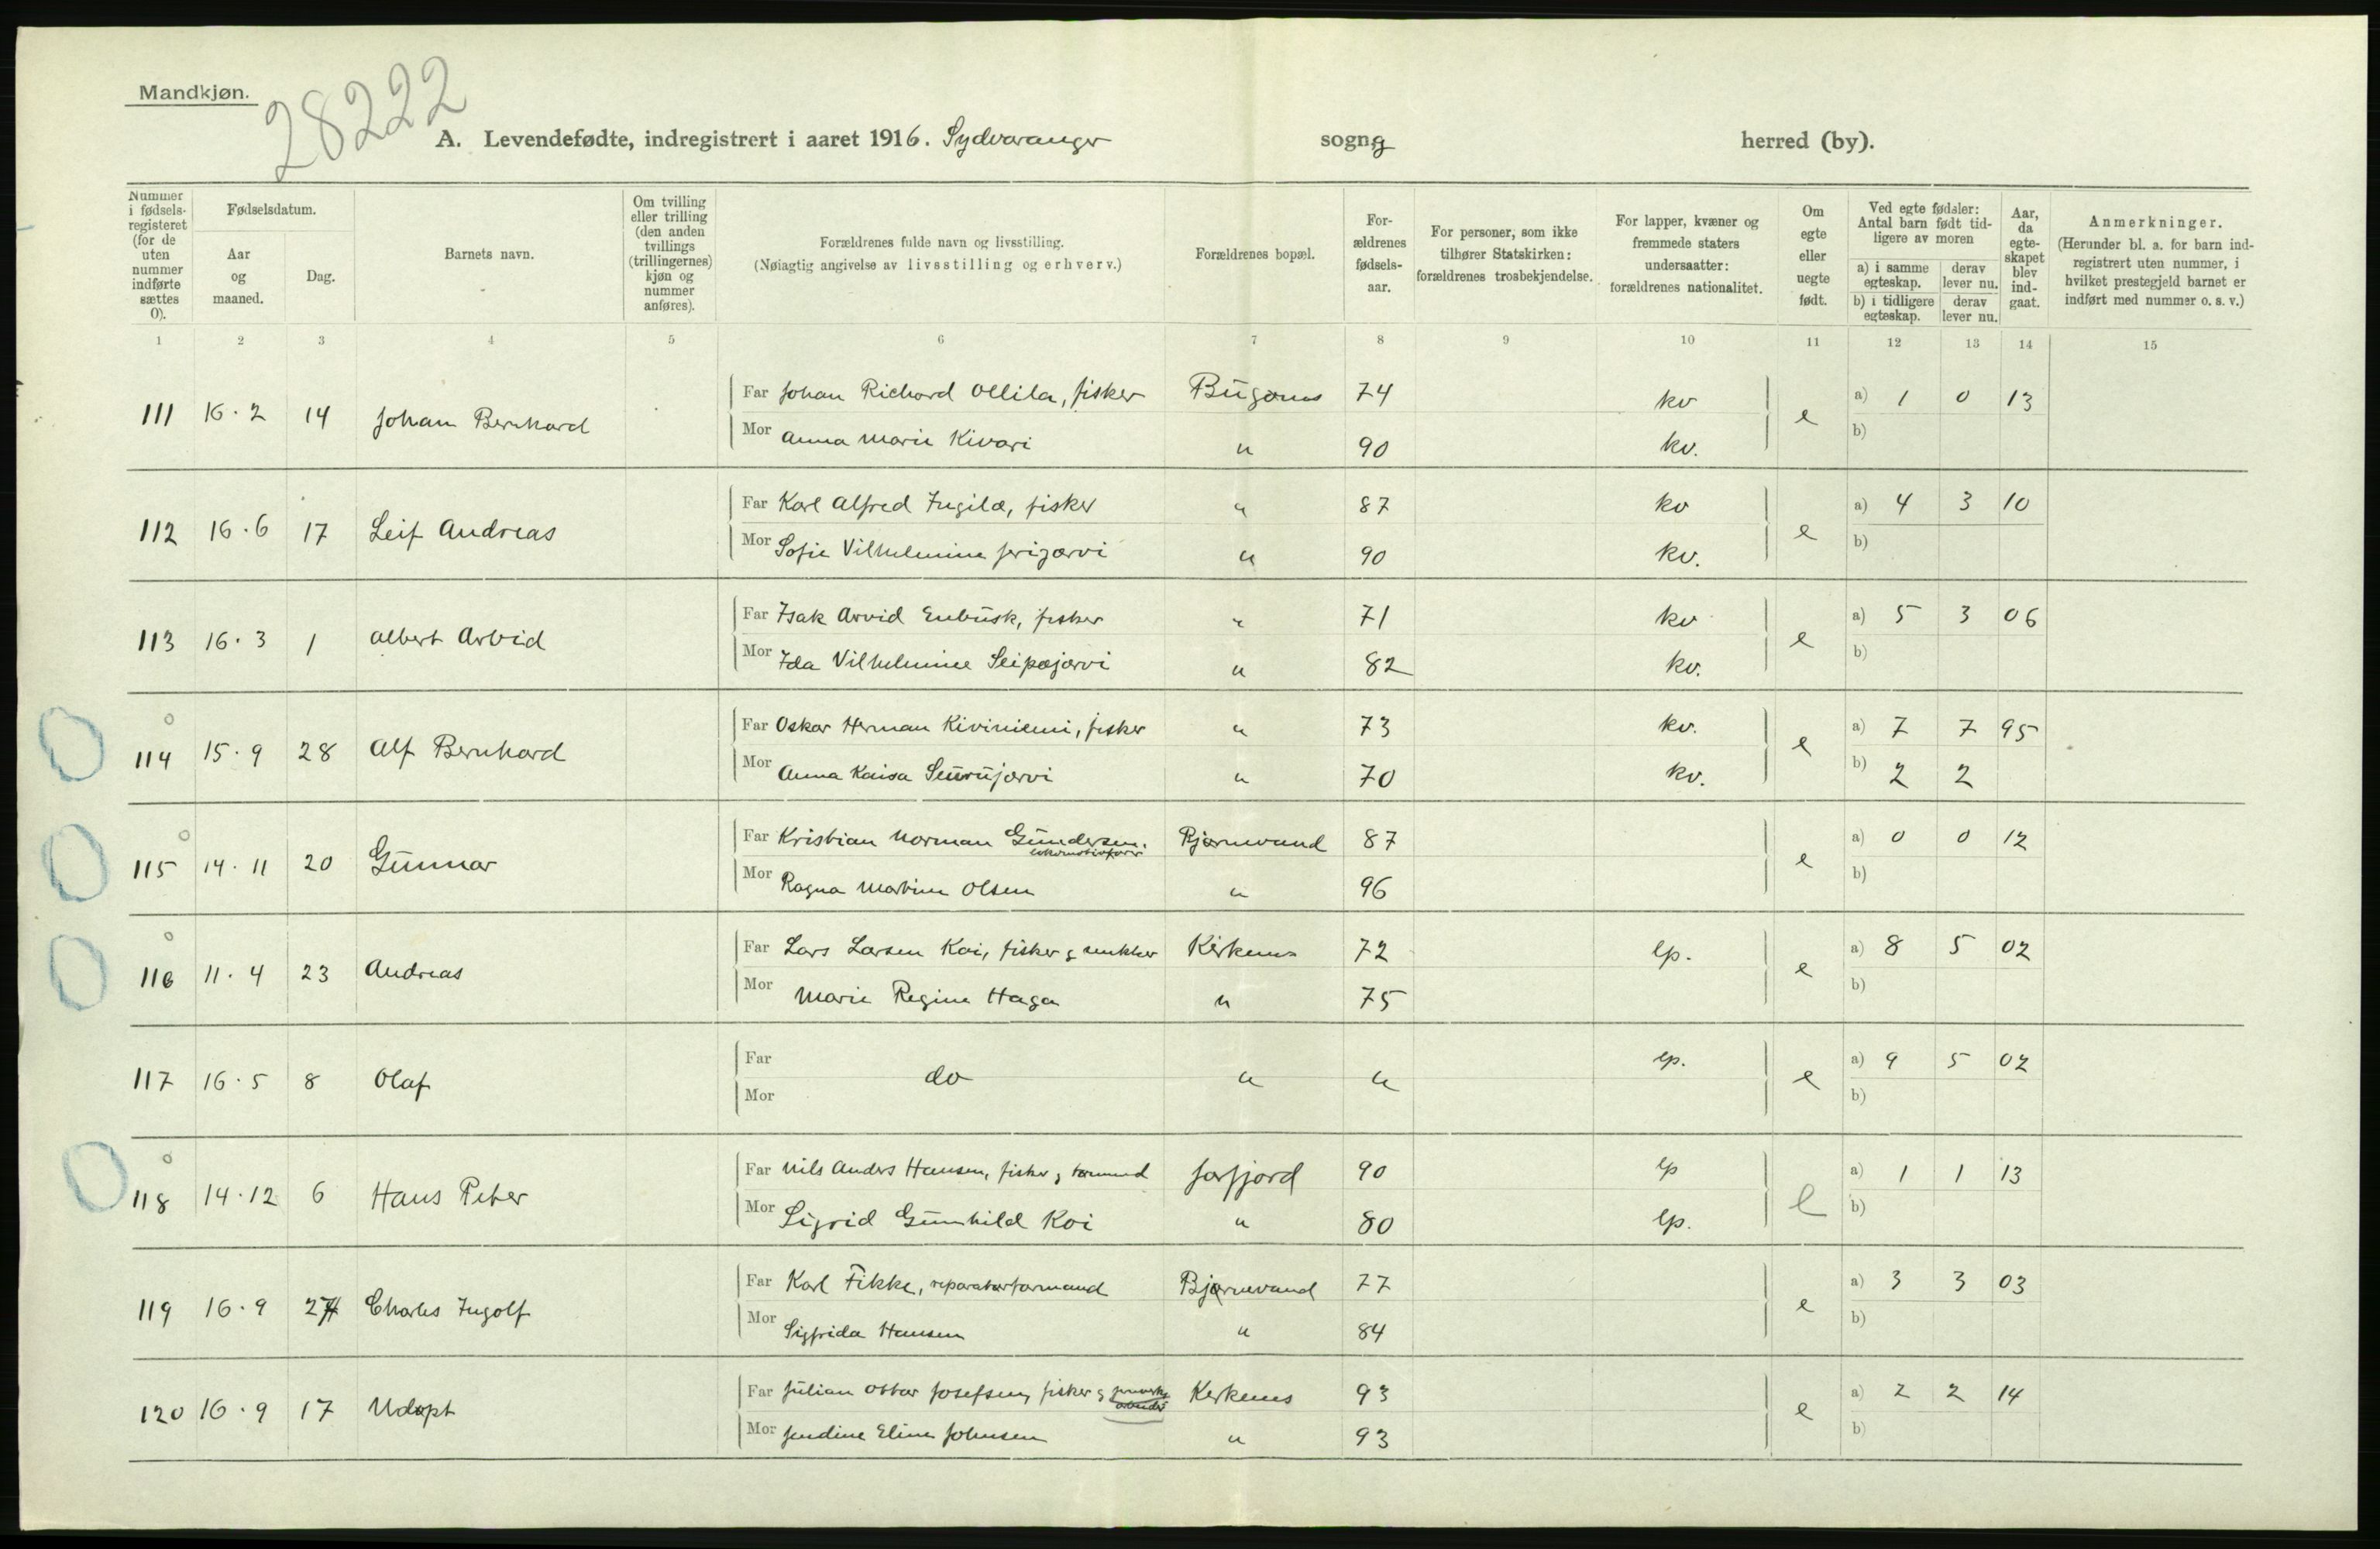 Mandkjøn.
28222
A. Levendefødte, indregistrert i aaret 1916. Sydvaranger sogn og herred (by).
Nummer i fødsels-registeret (for de uten nummer indførte sættes 0).
Fødselsdatum.
Aar og maaned.
Dag.
Barnets navn.
Om tvilling eller trilling (den anden tvillings (trillingernes) kjøn og nummer anføres).
Forældrenes fulde navn og livsstilling.
(Nøiagtig angivelse av livsstilling og erhverv.)
Forældrenes bopæl.
For-ældrenes fødsels-aar.
For personer, som ikke tilhører Statskirken: forældrenes trosbekjendelse.
For lapper, kvæner og fremmede staters undersaatter: forældrenes nationalitet.
Om egte eller uegte født.
Ved egte fødsler: Antal barn født tid-ligere av moren
a) i samme egteskap. derav lever nu.
b) i tidligere egteskap. derav lever nu.
Aar, da egte-skapet blev ind-gaat.
Anmerkninger.
(Herunder bl. a. for barn ind-registrert uten nummer, i hvilket prestegjeld barnet er indført med nummer o. s. v.)
1 2 3 4 5 6 7 8 9 10 11 12 13 14 15
111 16.2 14 Johan Bernhard Far Johan Richard Ollila, fisker Bugønes 74 kv e a) 1 0 13
Mor Anna Marie Kivari " 90 kv. b)
112 16.6 17 Leif Andreas Far Karl Alfred Ingilæ, fisker " 87 kv e a) 4 3 10
Mor Sofie Vilhelmine Jerijærvi " 90 kv. b)
113 16.3 1 Albert Arvid Far Isak Arvid Enbusk, fisker " 71 kv e a) 5 3 06
Mor Ida Vilhelmine Seipæjærvi " 82 kv. b)
0
114 15.9 28 Alf Bernhard Far Oskar Herman Kiviniemi, fisker " 73 kv. e a) 7 7 95
Mor Anna Kaisa Seurujærvi " 70 kv. b) 2 2
0
115 14.11 20 Gunnar Far Kristian Norman Gundersen, lokomotivfører Bjørnevand 87 e a) 0 0 12
Mor Ragna Martine Olsen " 96 b)
0
116 11.4 23 Andreas Far Lars Larsen Koi, fisker & snekker Kirkenes 72 lp. e a) 8 5 02
Mor Marie Regine Haga " 75 b)
117 16.5 8 Olaf Far do " " lp. e a) 9 5 02
Mor b)
0
118 14.12 6 Hans Peter Far Nils Anders Hansen, fisker & tømmermd Jarfjord 90 lp e a) 1 1 13
Mor Sigrid Gunhild Koi " 80 lp. b)
119 16.9 27 Charles Ingolf Far Karl Fikke, reparatørformand Bjørnevand 77 e a) 3 3 03
Mor Sigfrida Hansen " 84 b)
120 16.9 17 Udøpt Far Julian Ottar Josefsen, fisker & Kirkenes 93 e a) 2 2 14
Mor Jendine Eline Johnsen " 93 b)